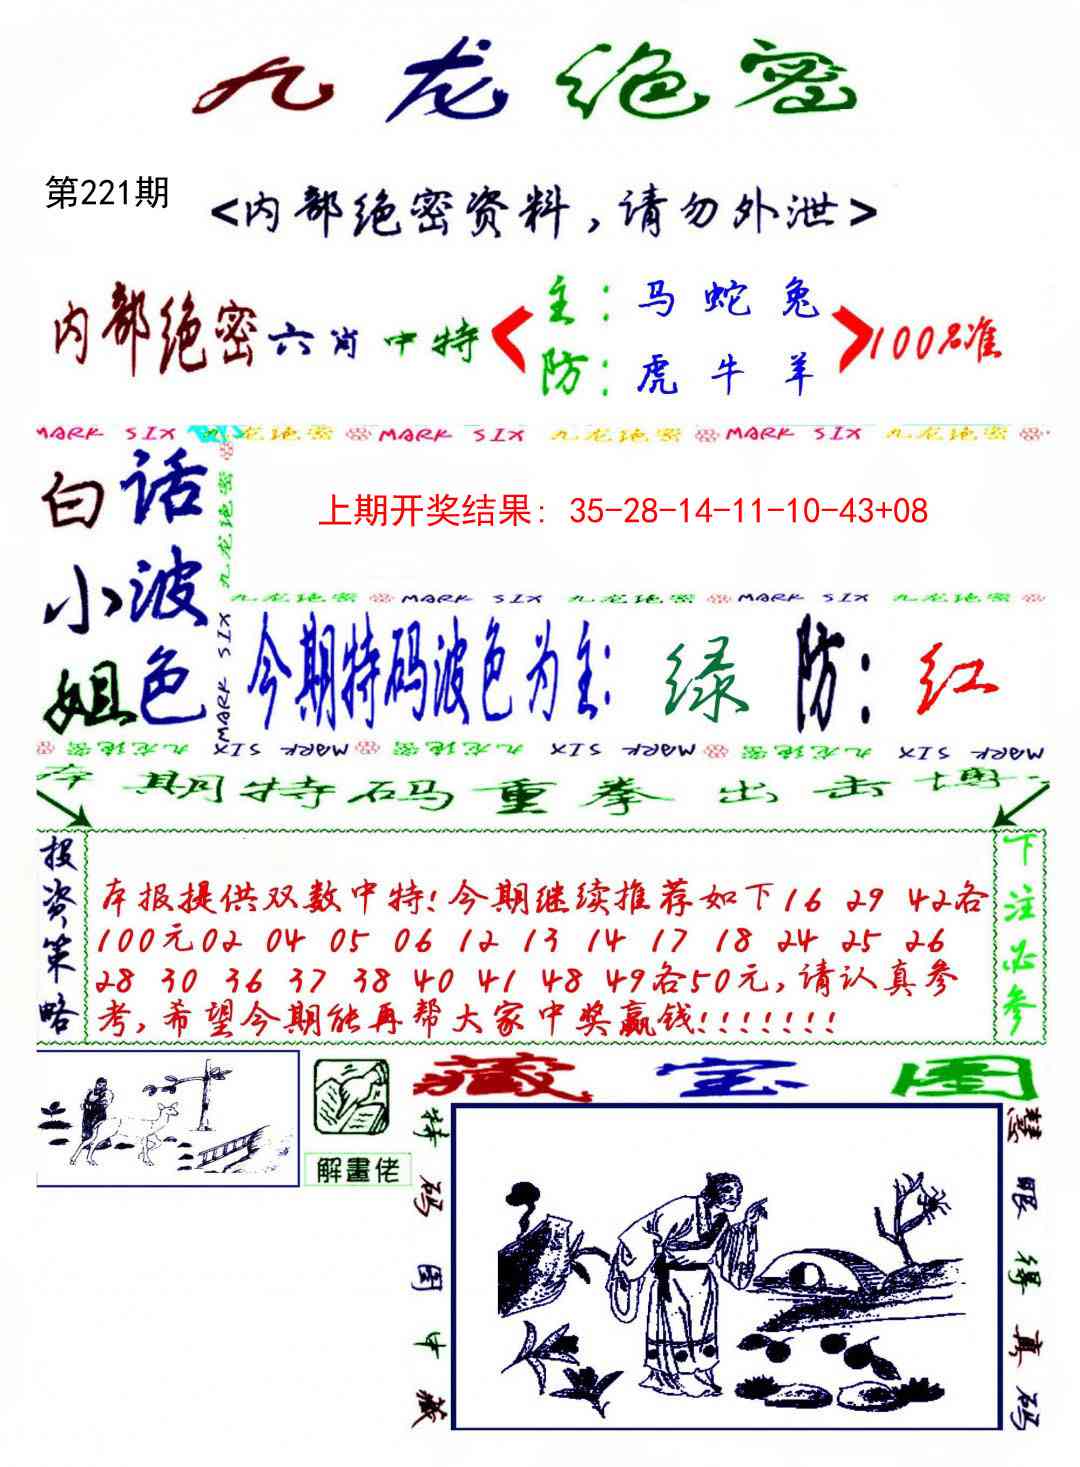 九龙绝密
第221期
<内部绝密资料,请勿外泄>
内部绝密六肖中特
主:马 蛇 兔
防:虎 牛 羊
100%准
MARK SIX 九龙绝密 MARK SIX 九龙绝密 MARK SIX 九龙绝密
白话
小波
姐色
九龙绝密
MARK SIX
上期开奖结果: 35-28-14-11-10-43+08
九龙绝密 MARK SIX 九龙绝密 MARK SIX 九龙绝密
今期特码波色为主: 绿 防: 红
九龙绝密 MARK SIX 九龙绝密 MARK SIX 九龙绝密 MARK SIX
本期特码重拳出击博
投资策略
本报提供双数中特!今期继续推荐如下16 29 42各
100元02 04 05 06 12 13 14 17 18 24 25 26
28 30 36 37 38 40 41 48 49各50元,请认真参
考,希望今期能再帮大家中奖赢钱!!!!!!!
下注必参
解畫佬
藏宝图
特码图中藏
慧眼得真码